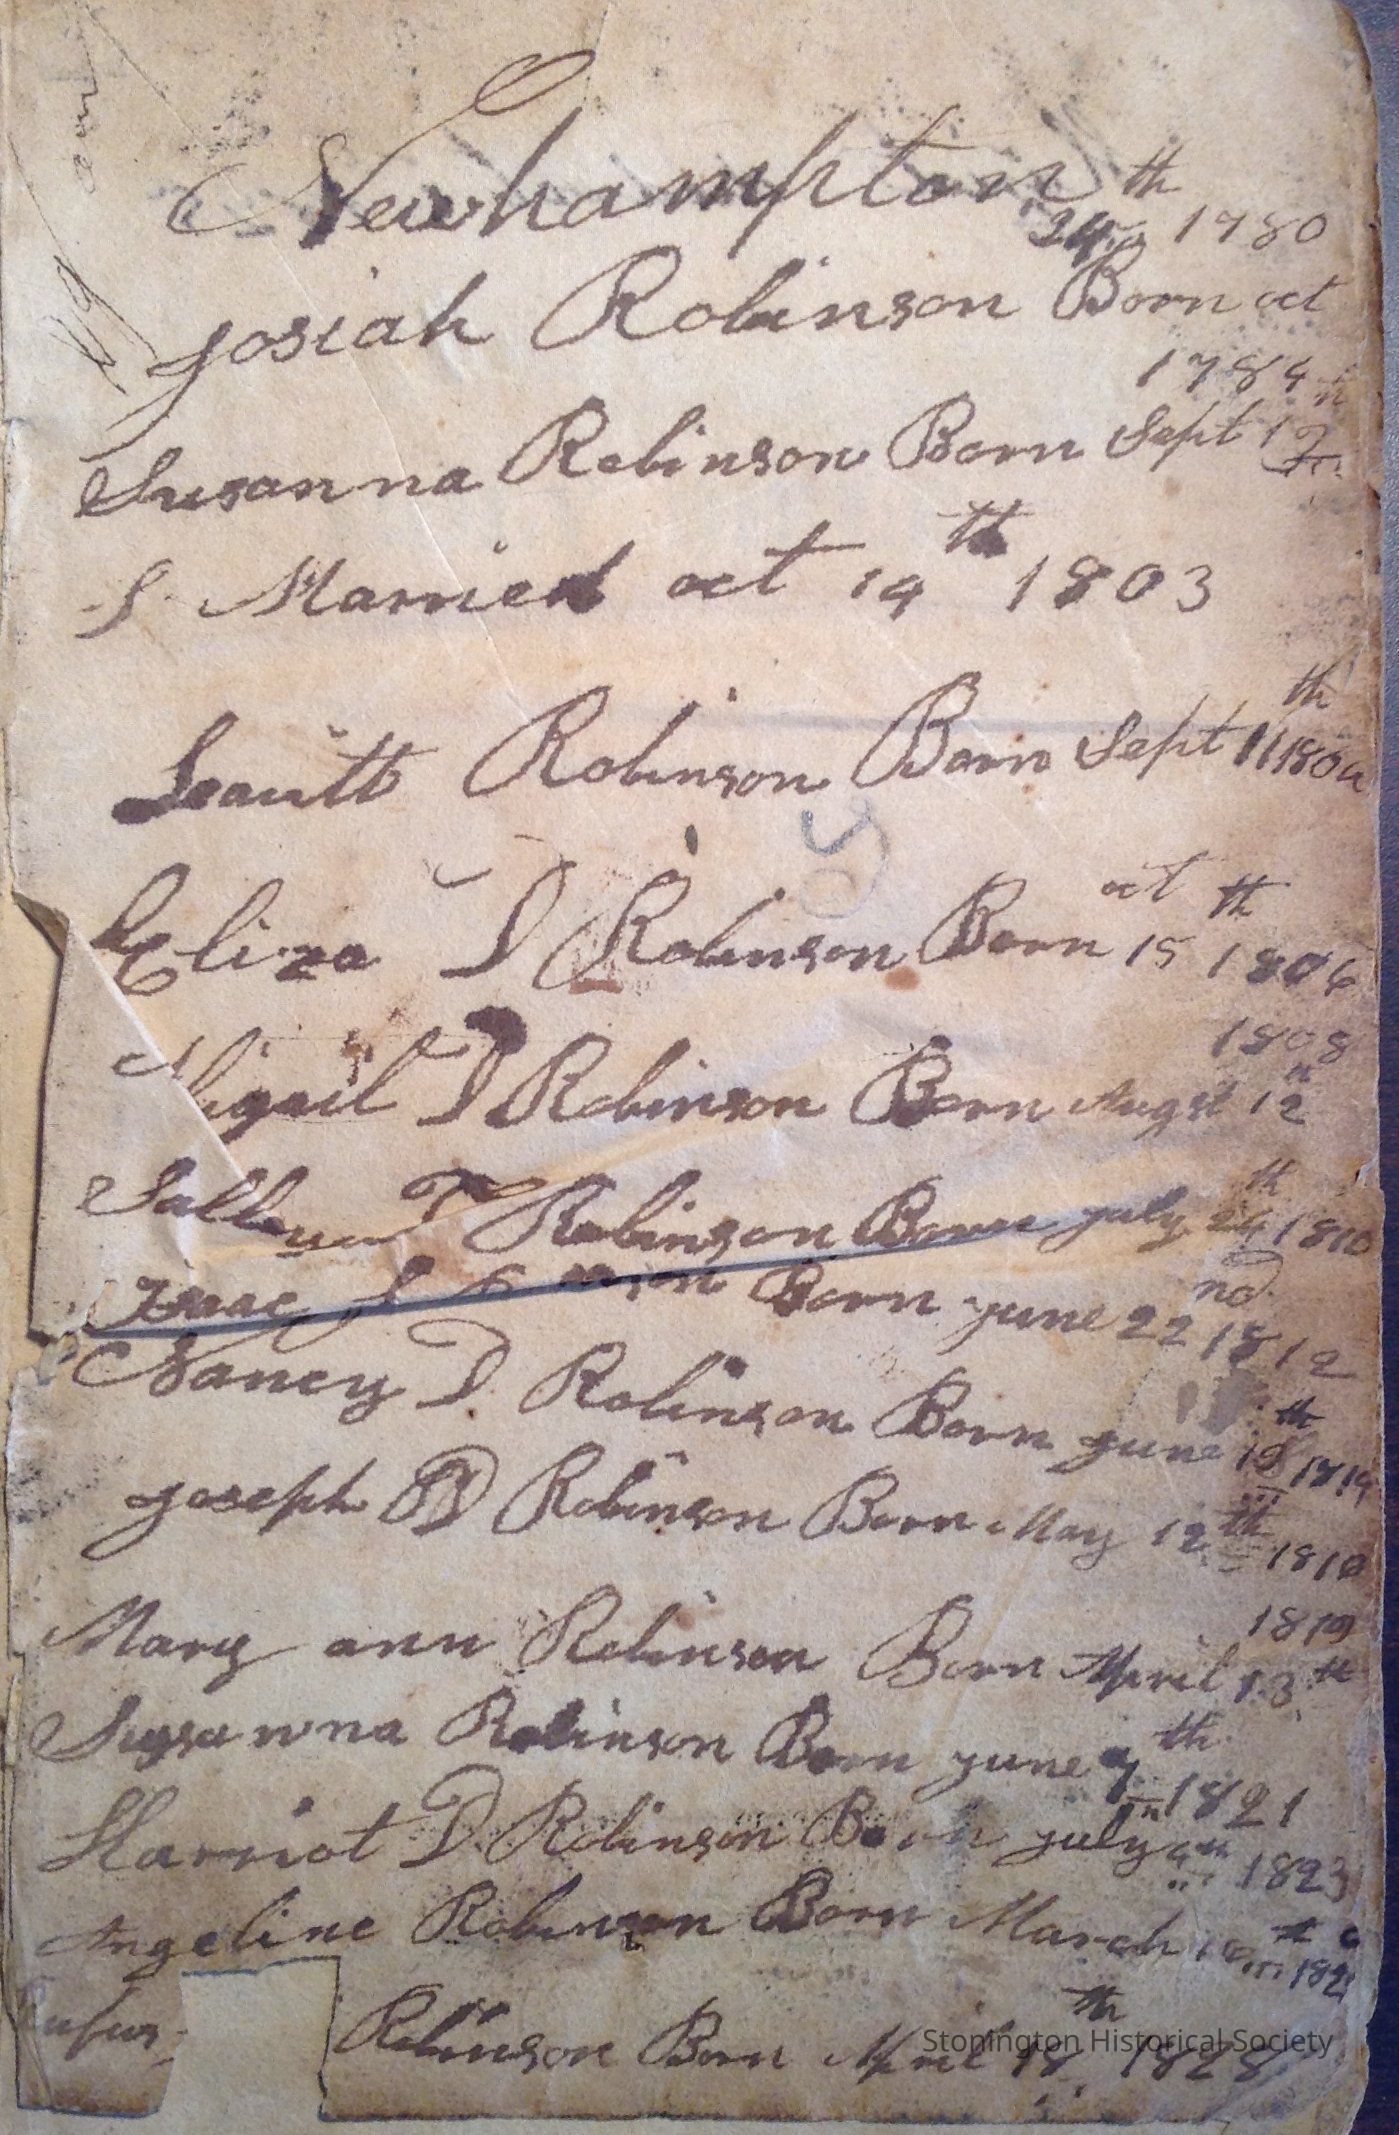 Newhampton
24th 1780
Josiah Robinson Born oct
1784
Susanna Robinson Born Sept 12
S. Married oct 14th 1803
Leavitt Robinson Born Sept 11th 1804
Eliza D Robinson Born oct 15th 1806
1808
Abigail D Robinson Born Augst 12
Sally D Robinson Born July 24th 1810
Isaac S Born June 22nd 1812
Nancy D Robinson Born June 18th 1814
Joseph D Robinson Born May 12th 1816
1819
Mary ann Robinson Born April 13th
Susanna Robinson Born June 7th 1821
Harriot D Robinson Born July 4th 1823
Angeline Robinson Born March
Rufus Robinson Born April 18th 1828
Stonington Historical Society